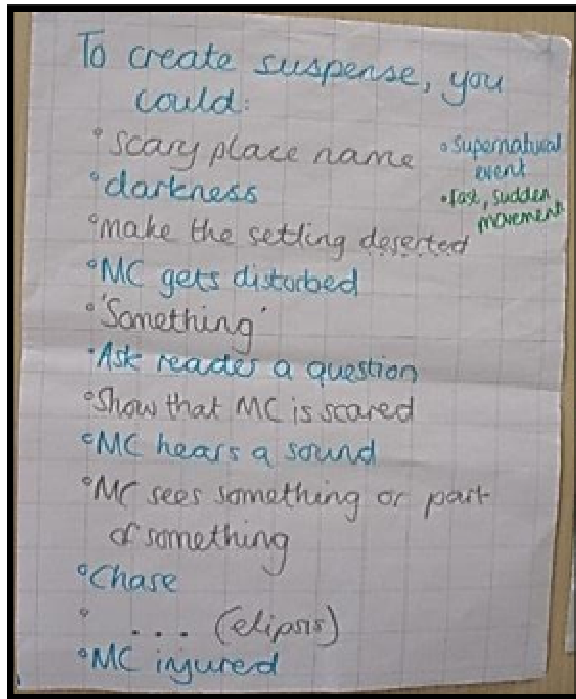 To create suspense, you
could:
° scary place name
° darkness
° make the setting deserted
° MC gets disturbed
° 'Something'
• Ask reader a question
° Show that MC is scared
° MC hears a sound
° MC sees something or part
of something
° Chase
° ... (elipsis)
° MC injured
° Supernatural
event
• Fast, sudden
movement